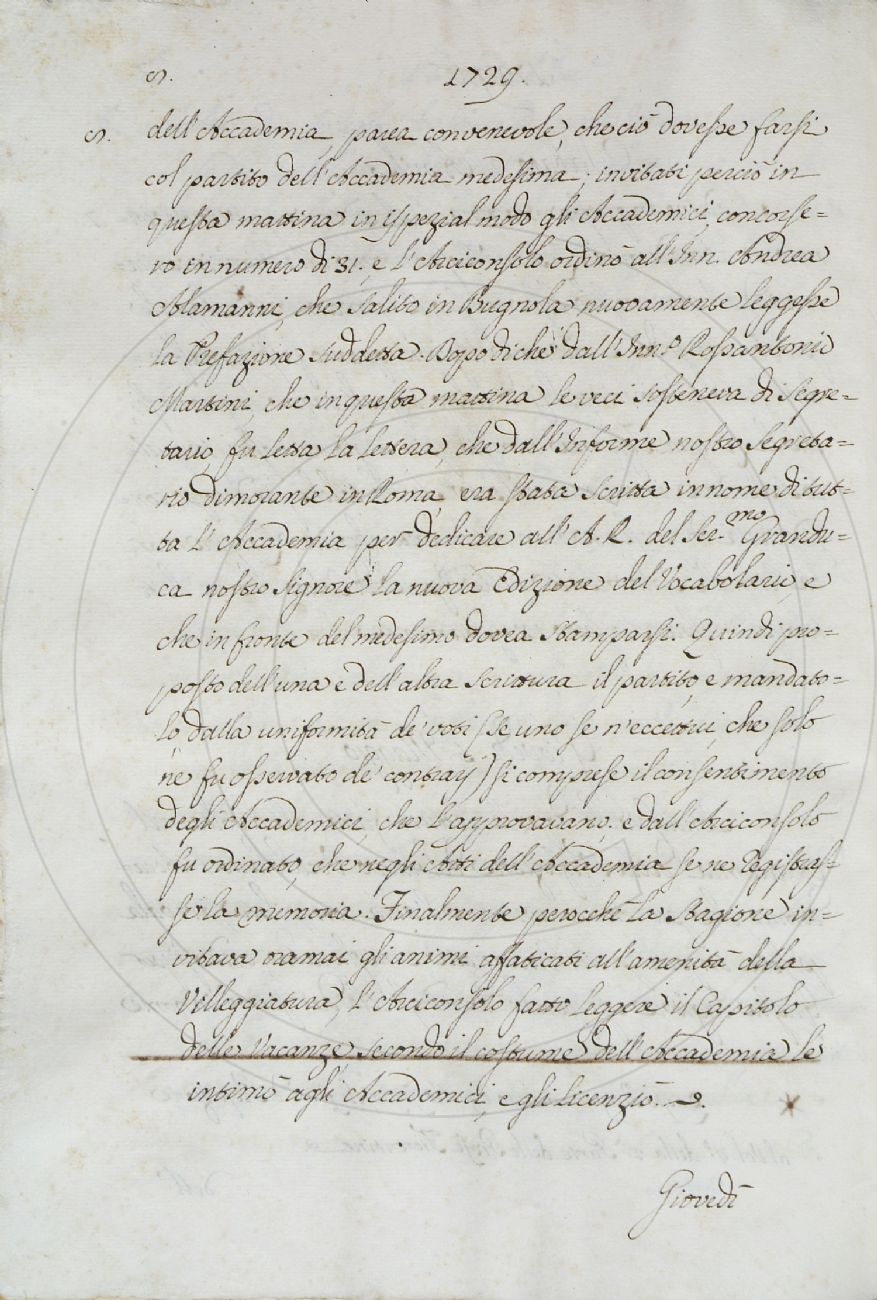 S. 1729.
S. dell'Accademia, parea convenevole, che ciò dovesse farsi
col partito dell'Accademia medesima; invitati perciò in
questa mattina in ispezial modo gli Accademici, concorse=
ro in numero di 31., e l'Arciconsolo ordinò all'Inn. Andrea
Alamanni, che salito in Bugnola nuovamente leggesse
la Prefazione suddetta. Dopo di che dall'Inn.º Rossantonio
Martini, che in questa mattina le veci sosteneva di Segre=
tario, fu letta la lettera, che dall'Informe nostro Segreta=
rio dimorante in Roma, era stata scritta in nome di tut=
ta l'Accademia per dedicare all'A. R. del Ser.mo Grandu=
ca nostro Signore la nuova Edizione del Vocabolario, e
che in fronte del medesimo dovea stamparsi. Quindi pro=
posto dell'una e dell'altra scrittura il partito, e mandato=
lo dalla uniformità de' voti (se uno se n'eccettui, che solo
ne fu osservato de' contrarj) si comprese il consentimento
degli Accademici, che l'approvavano; e dall'Arciconsolo
fu ordinato, che negli Atti dell'Accademia se ne registras=
se la memoria. Finalmente perocchè la Stagione in=
vitava oramai gli animi affaticati all'amenità della
Villeggiatura, l'Arciconsolo fatto leggere il Capitolo
delle Vacanze secondo il costume dell'Accademia le
intimò agli Accademici, e gli licenziò.
Giovedì